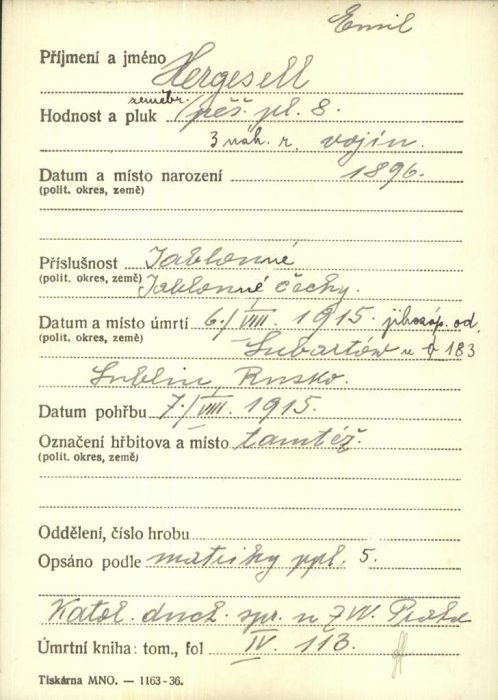 Emil
Příjmení a jméno Hergesell
zeměbr.
Hodnost a pluk pěš. pl. 8.
3 náh. r. vojín.
Datum a místo narození 1896.
(polit. okres, země)
Příslušnost Jablonné
(polit. okres, země) Jablonné čechy.
Datum a místo úmrtí 6./VIII. 1915. jihozáp. od
(polit. okres, země) Lubartów u 183
Lublin, Rusko.
Datum pohřbu 7./VIII. 1915.
Označení hřbitova a místo tamtéž.
(polit. okres, země)
Oddělení, číslo hrobu
Opsáno podle matriky ppl. 5.
Katol. duch. spr. u ZVV. Praha
Úmrtní kniha: tom., fol IV. 113.
Tiskárna MNO. — 1163-36.